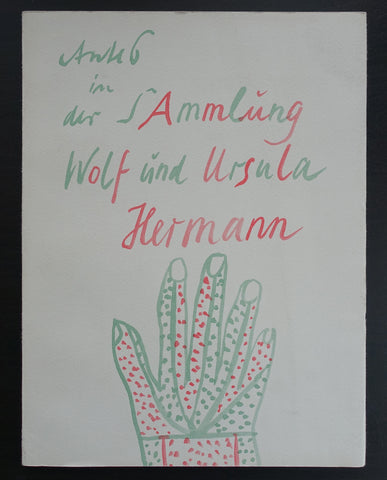 Antes
in
der SAmmlung
Wolf und Ursula
Hermann